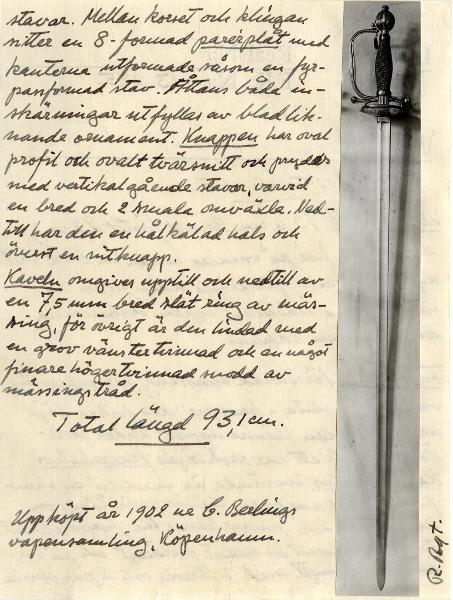 stavar. Mellan korset och klingan
sitter en 8-formad parérplåt med
kanterna utformade såsom en fyr-
passformad stav. Åttans båda in-
skärningar utfyllas av bladlik-
nande ornament. Knappen har oval
profil och ovalt tvärsnitt och prydes
med vertikalgående stavar, varvid
en bred och 2 smala omväxla. Ned-
till har den en hålkälad hals och
överst en nitknapp.
Kaveln omgives upptill och nedtill av
en 7,5 mm bred slät ring av mäs-
sing, för övrigt är den lindad med
en grov vänstertvinnad och en något
finare högertvinnad snodd av
mässingstråd.
Total längd 93,1 cm.
Uppköpt år 1902 ur C. Beelings
vapensamling, Köpenhamn.